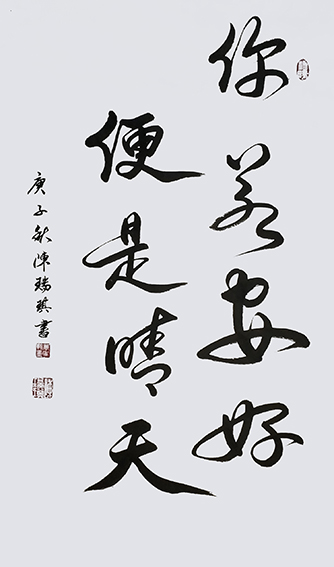 你若安好
便是晴天
庚子秋陈瑞琪書